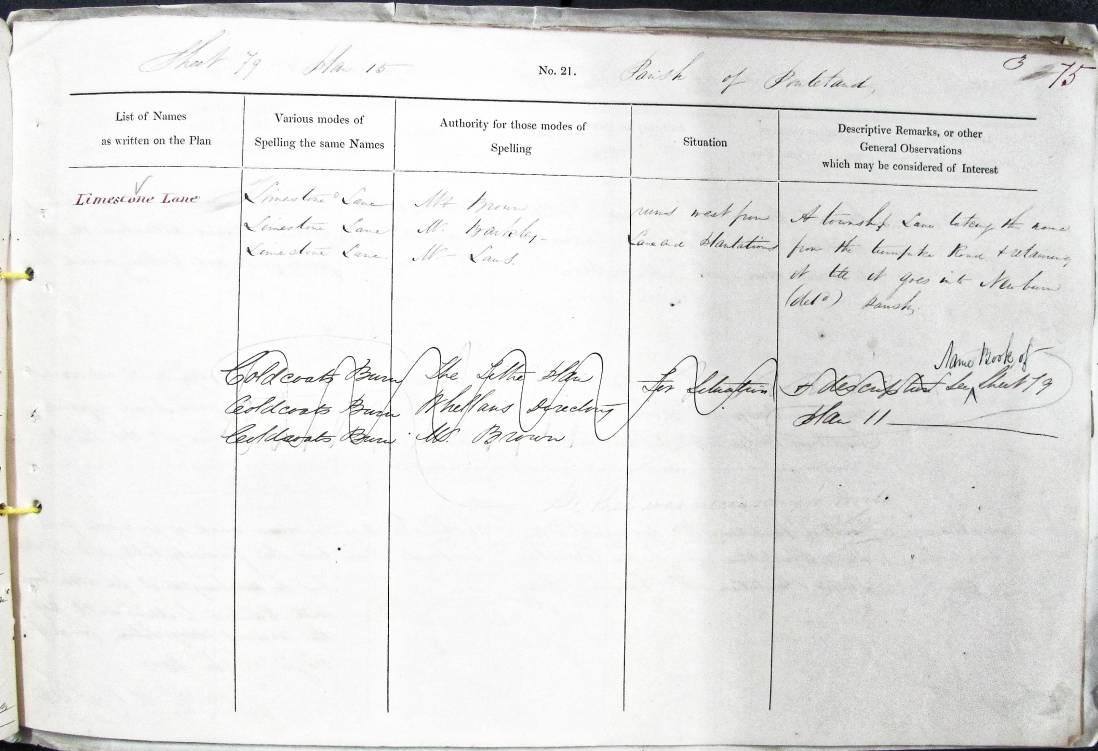 Sheet 79 Plan 15 No. 21. Parish of Ponteland, 3 75
List of Names
as written on the Plan
Various modes of
Spelling the same Names
Authority for those modes of
Spelling
Situation
Descriptive Remarks, or other
General Observations
which may be considered of Interest
Limestone Lane
Limestone Lane
Limestone Lane
Limestone Lane
Mr Brown
Mr Barkley
Mr Laws.
runs west from
Lane and Plantations
A township Lane taking the name
from the turnpike Road & retaining
it till it goes into Newburn
(deto) Parish.
Coldcoats Burn
Coldcoats Burn
Coldcoats Burn
The Tithe Plan
Whellans Directory
Mr. Brown
For Situation
Name Book of
& description see Sheet 79
Plan 11